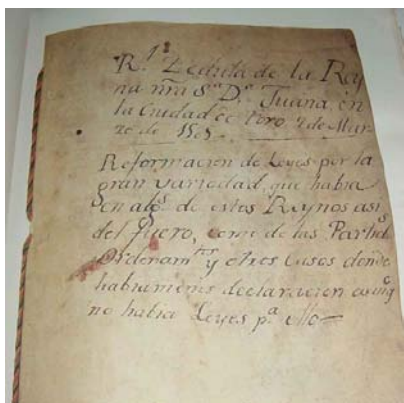 Rl Zedula de la Rey
na nrã Sa Da Juana en
la Ciudad de Toro 7 de Mar
zo de 1505
Reformacion de Leyes por la
gran variedad, que habia
en algs de estos Reynos asi
del fuero, como de las Partids
Ordenamtos y otros casos donde
declaracion
no habia Leyes pa ello